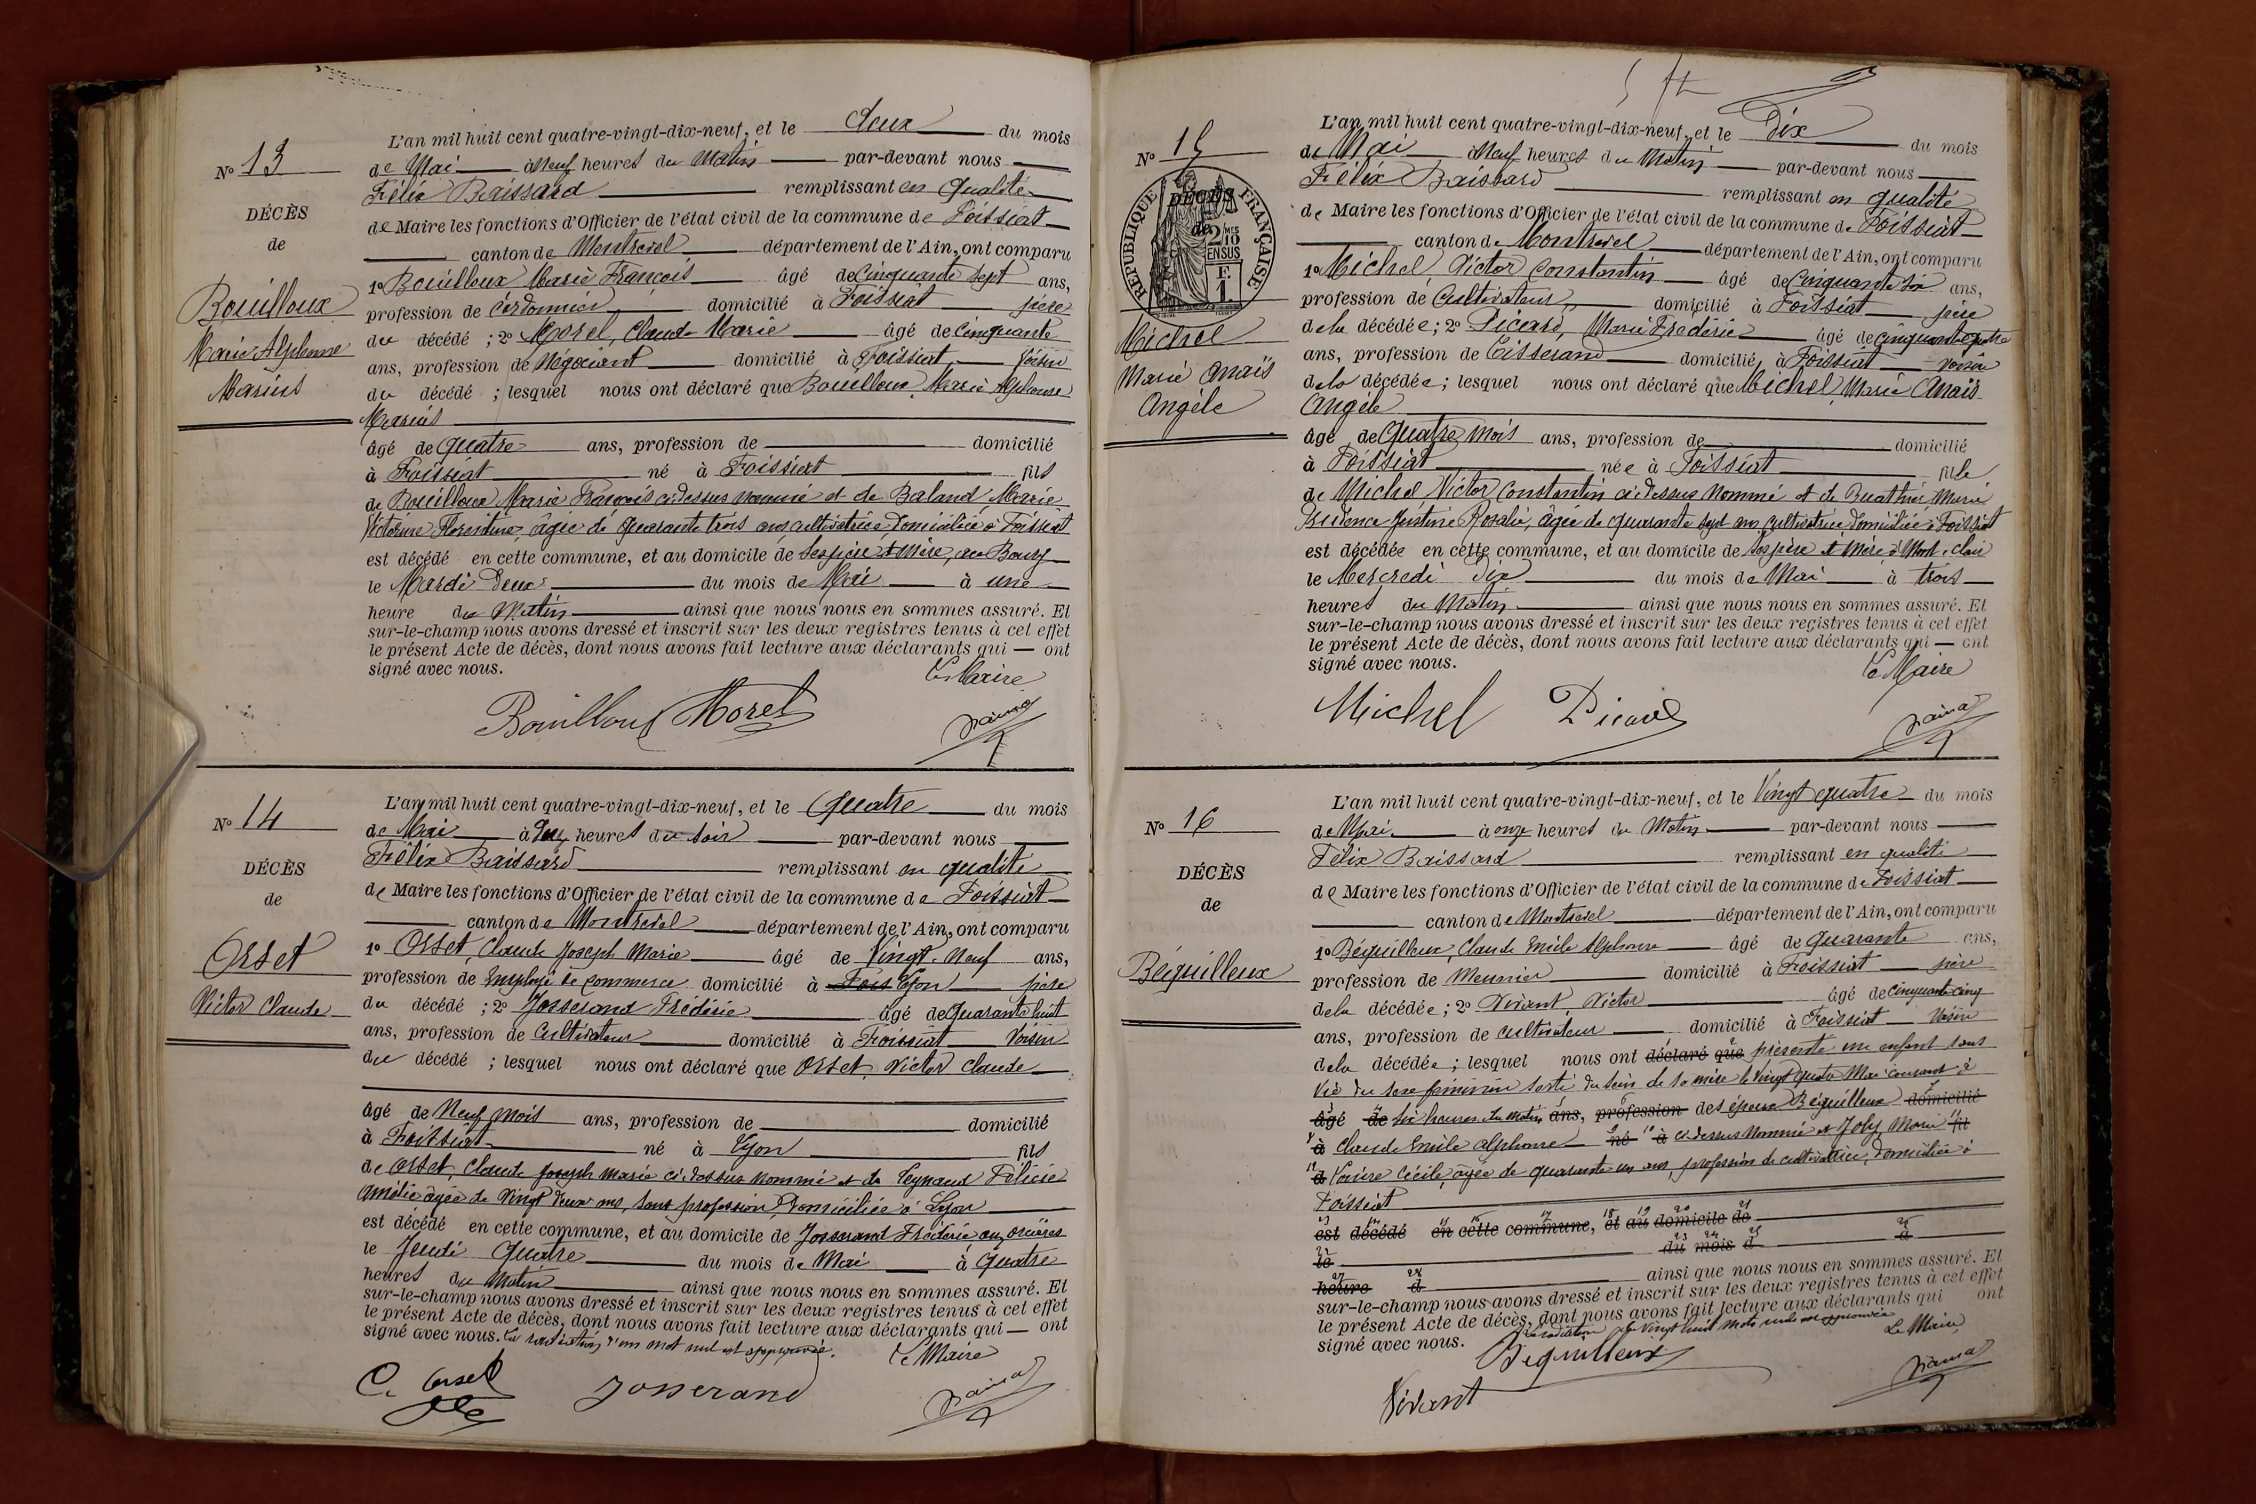 L'an mil huit cent quatre-vingt-dix-neuf, et le deux du mois
No 13
de Mai à Neuf heures du Matin par-devant nous
Félix Baissard remplissant en qualité
DÉCÈS
de Maire les fonctions d'Officier de l'état civil de la commune de Foissiat
de
canton de Montrevel département de l'Ain, ont comparu
Bouilloux
1o Bouilloux Marie François âgé de Cinquante Sept ans,
profession de Cordonnier domicilié à Foissiat père
Marie Alphonse
du décédé ; 2o Morel, Claude Marie âgé de Cinquante
Marius
ans, profession de Négociant domicilié à Foissiat voisin
du décédé ; lesquel nous ont déclaré que Bouilloux Marie Alphonse
Marius
âgé de quatre ans, profession de domicilié
à Foissiat né à Foissiat fils
de Bouilloux Marie François ci-dessus nommé et de Baland Marie
Victorine Florentine âgée de quarante trois ans cultivatrice domiciliée à Foissiat
est décédé en cette commune, et au domicile de ses père et mère, au Bourg
le Mardi Deux du mois de Mai à une
heure du Matin ainsi que nous nous en sommes assuré. Et
sur-le-champ nous avons dressé et inscrit sur les deux registres tenus à cet effet
le présent Acte de décès, dont nous avons fait lecture aux déclarants qui — ont
signé avec nous.
Le Maire
Bouilloux Morel
No 14
L'an mil huit cent quatre-vingt-dix-neuf, et le Quatre du mois
de Mai à heures du soir par-devant nous
Félix Baissard remplissant en qualité
DÉCÈS
de Maire les fonctions d'Officier de l'état civil de la commune de Foissiat
de
canton de Montrevel département de l'Ain, ont comparu
Orset
1o Orset, Claude Joseph Marie âgé de Vingt Neuf ans,
profession de Employé de commerce domicilié à Fois Lyon père
Victor Claude
du décédé ; 2o Josserand Frédéric âgé de Quarante huit
ans, profession de Cultivateur domicilié à Foissiat Voisin
du décédé ; lesquel nous ont déclaré que Orset Victor Claude
âgé de Neuf mois ans, profession de domicilié
à Foissiat né à Lyon fils
de Orset, Claude Joseph Marie ci dessus nommé et de Félicie
Amélie âgée de Vingt deux ans, sans profession, domiciliée à Lyon
est décédé en cette commune, et au domicile de Josserand Frédéric
le Jeudi Quatre du mois de Mai à Quatre
heures du Matin ainsi que nous nous en sommes assuré. Et
sur-le-champ nous avons dressé et inscrit sur les deux registres tenus à cet effet
le présent Acte de décès, dont nous avons fait lecture aux déclarants qui — ont
signé avec nous. La radiation d'un mot nul est approuvée.
Le Maire
C. Orset Josserand
L'an mil huit cent quatre-vingt-dix-neuf, et le Dix du mois
No 15
de Mai à Neuf heures du Matin par-devant nous
Félix Baissard remplissant en qualité
RÉPUBLIQUE FRANÇAISE
DÉCÈS
de
2/10 MES
EN SUS
F.
1
de Maire les fonctions d'Officier de l'état civil de la commune de Foissiat
canton de Montrevel département de l'Ain, ont comparu
1o Michel Victor Constantin âgé de Cinquante six ans,
profession de Cultivateur domicilié à Foissiat père
Michel
de la décédée ; 2o Picard, Marie Frédéric âgé de cinquante quatre
Marie Anaïs
ans, profession de Tisserand domicilié à Foissiat voisin
de la décédée ; lesquel nous ont déclaré que Michel Marie Anaïs
Angèle
Angèle
âgé de Quatre mois ans, profession de domicilié
à Foissiat née à Foissiat fille
de Michel Victor Constantin ci-dessus nommé et de Marie
Prudence Justine Rosalie, âgée de quarante sept ans cultivatrice domiciliée à Foissiat
est décédée en cette commune, et au domicile de ses père et mère à
le Mercredi Dix du mois de Mai à trois
heures du Matin ainsi que nous nous en sommes assuré. Et
sur-le-champ nous avons dressé et inscrit sur les deux registres tenus à cet effet
le présent Acte de décès, dont nous avons fait lecture aux déclarants qui — ont
signé avec nous.
Le Maire
Michel Picard
No 16
L'an mil huit cent quatre-vingt-dix-neuf, et le Vingt quatre du mois
de Mai à onze heures du Matin par-devant nous
Félix Baissard remplissant en qualité
DÉCÈS
de Maire les fonctions d'Officier de l'état civil de la commune de Foissiat
de
canton de Montrevel département de l'Ain, ont comparu
Béquilleux
1o Béquilleux, Claude Emile Alphonse âgé de quarante ans,
profession de Meunier domicilié à Foissiat père
de la décédée ; 2o Vivant, Victor âgé de cinquante cinq
ans, profession de cultivateur domicilié à Foissiat Voisin
de la décédée ; lesquel nous ont déclaré que présenté un enfant sans
vie du sexe féminin sorti du sein de sa mère le vingt quatre Mai courant à
âgé de six heures du matin ans, profession des époux Béquilleux domicilié
à Claude Emile Alphonse né à ci-dessus nommé et Joly Marie fil
d Cécile, âgée de quarante un ans, profession de cultivatrice, domiciliée à
Foissiat
est décédé en cette commune, et au domicile de
le du mois d à
heure d ainsi que nous nous en sommes assuré. Et
sur-le-champ nous avons dressé et inscrit sur les deux registres tenus à cet effet
le présent Acte de décès, dont nous avons fait lecture aux déclarants qui ont
signé avec nous. La radiation de vingt huit mots nuls est approuvée
Le Maire
Béquilleux
Vivant